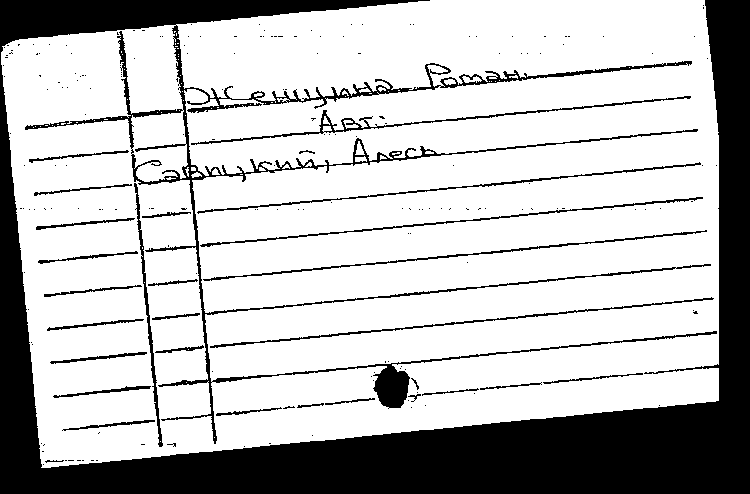 Женщина Роман.
Авт.:
Савицкий, Алесь